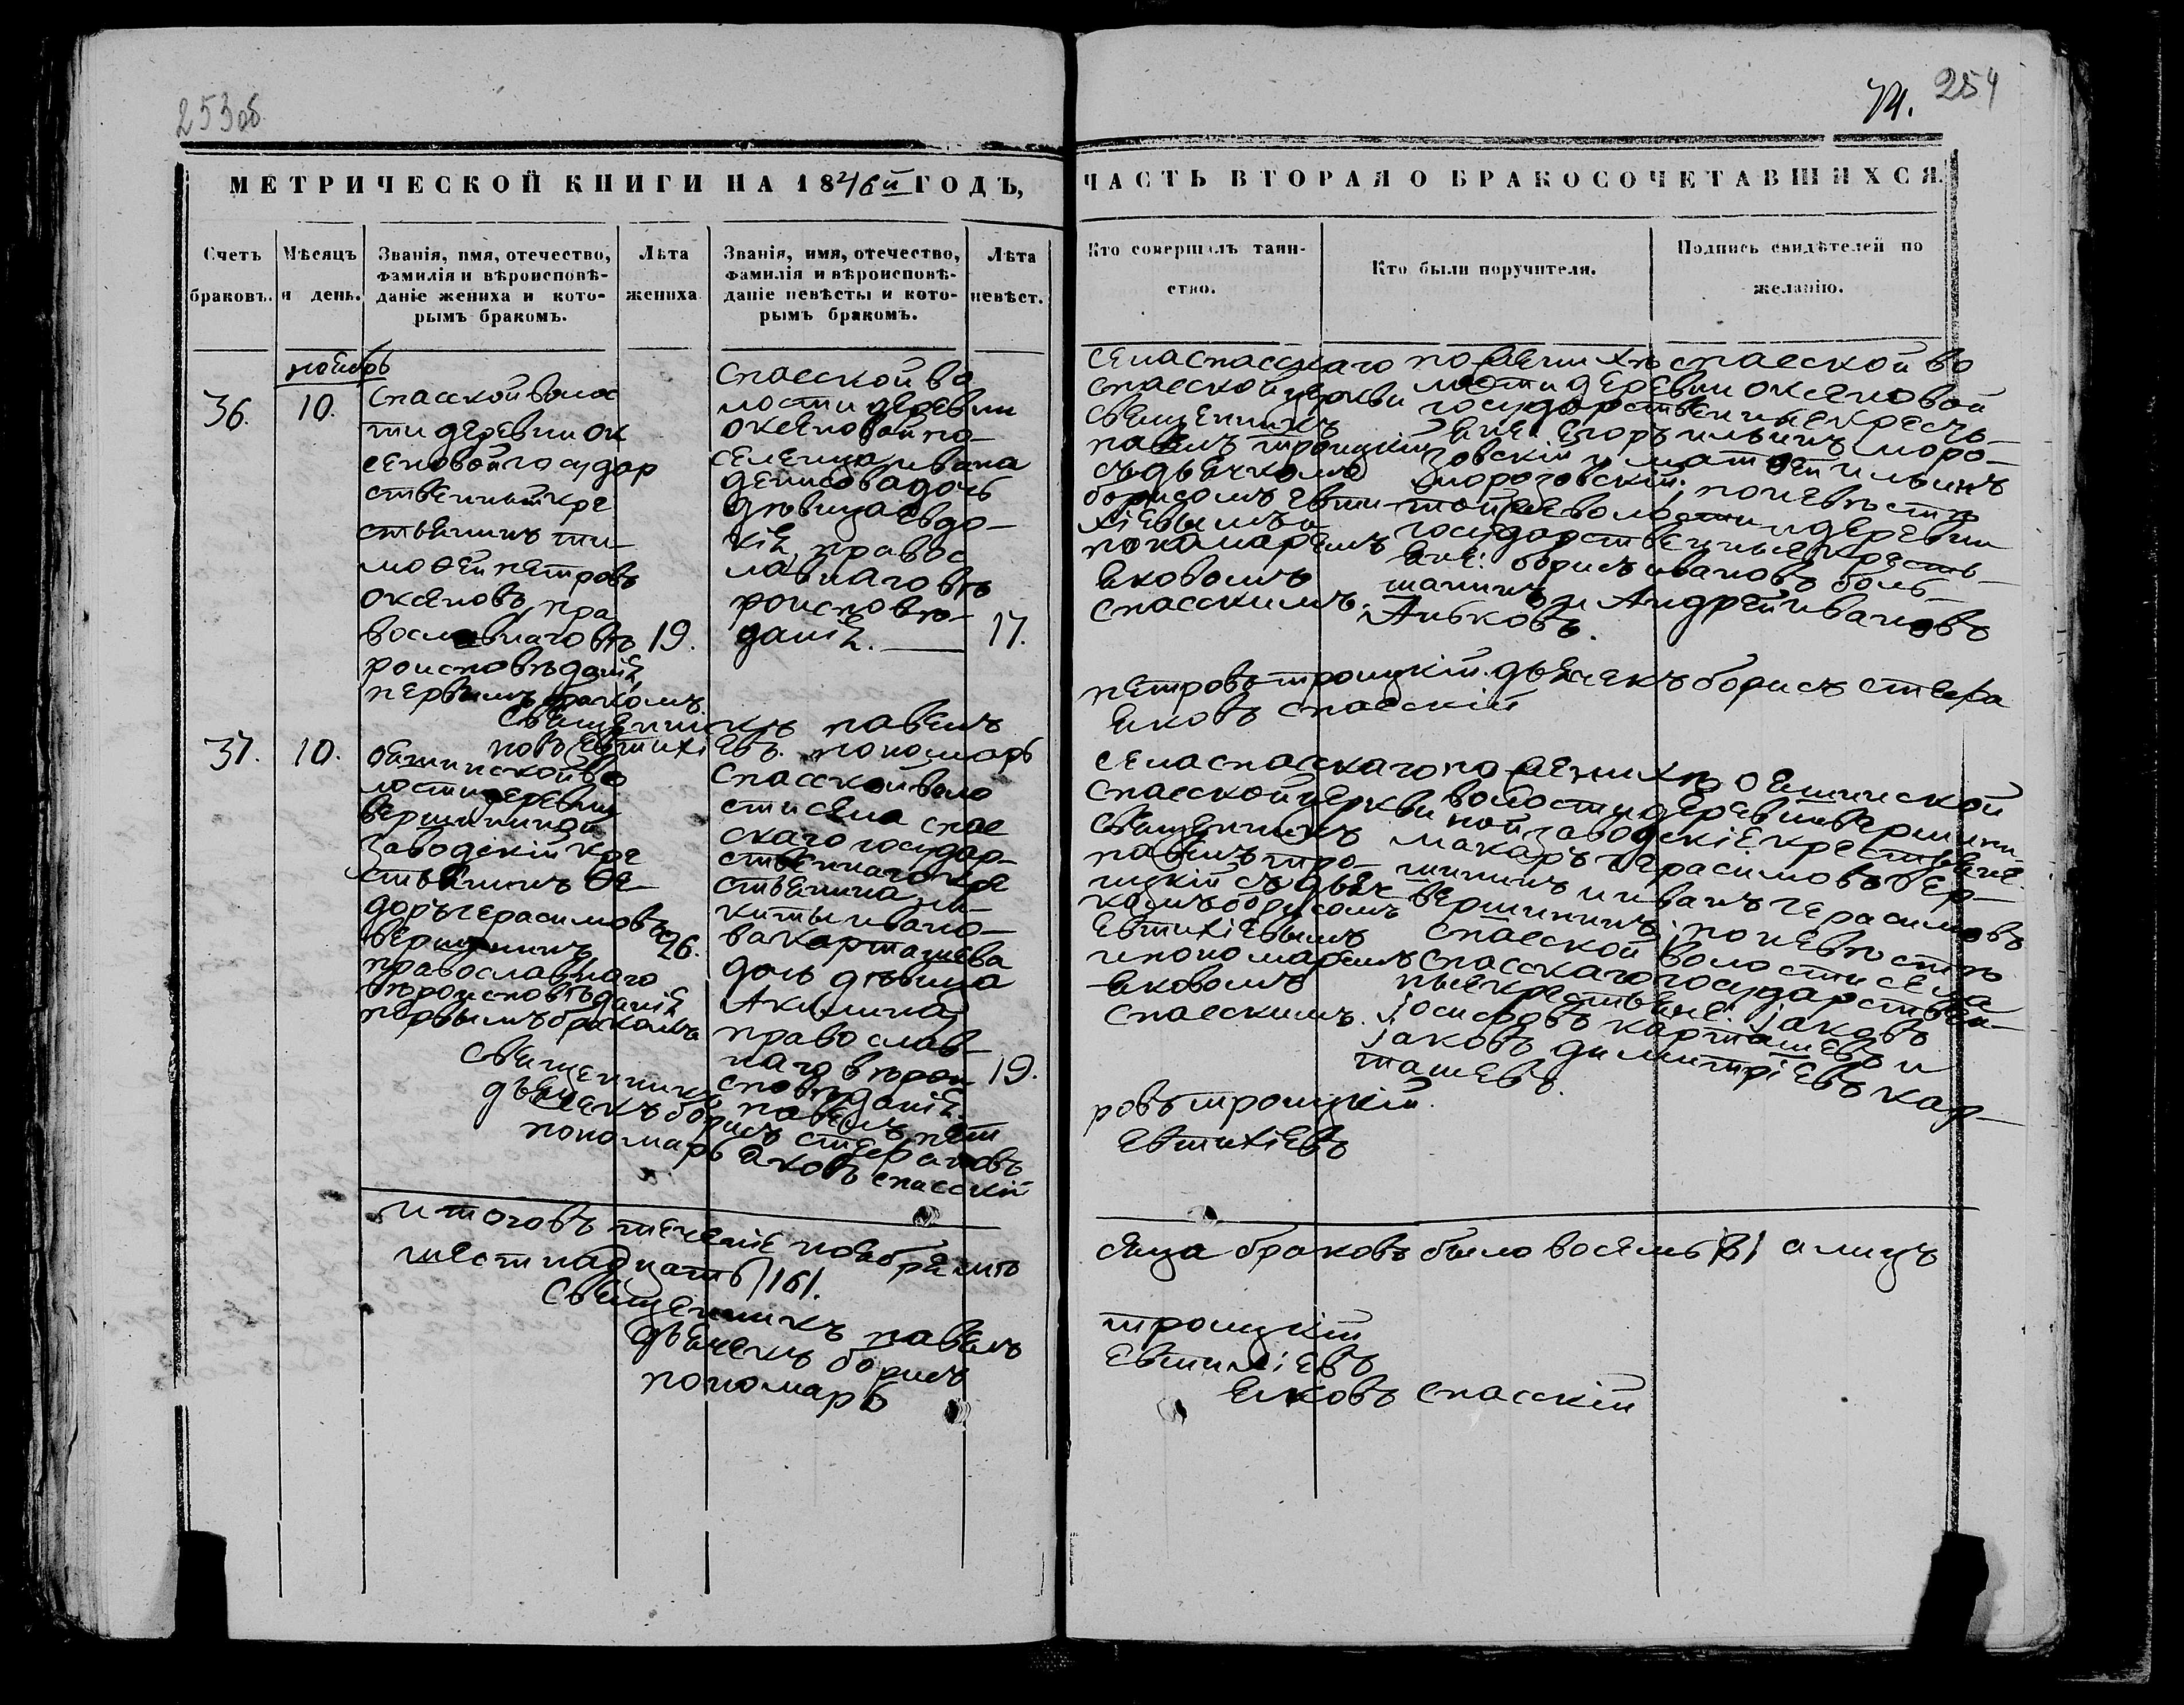 253об
71. 254
МЕТРИЧЕСКОЙ КНИГИ НА 1846й ГОДЪ,
ЧАСТЬ ВТОРАЯ О БРАКОСОЧЕТАВШИХСЯ.
Счетъ
браковъ.
Мѣсяцъ
и день.
Званія, имя, отечество,
фамилія и вѣроисповѣ-
даніе жениха и кото-
рымъ бракомъ.
Лѣта
жениха
Званія, имя, отечество,
фамилія и вѣроисповѣ-
даніе невѣсты и кото-
рымъ бракомъ.
Лѣта
невѣст.
Кто совершалъ таин-
ство.
Кто были поручители.
Подпись свидѣтелей по
желанію.
36.
ноябрь
10.
спасской волос
ти деревни ок
сеновой государ
ственный кре
стьянинъ ти-
моѳей петровъ
оксеновъ, пра
вославнаго вѣ
роисповѣданія,
первымъ бракомъ.
19.
спасской во
лости деревни
оксеновой по-
селенца ивана
денисова дочь
дѣвица евдо-
кія, правос
лавнаго вѣ
роисповѣ-
данія.
17.
села спасскаго
спасской церкви
священникъ
павелъ троицкій
съ дьячкомъ
борисомъ евти-
хіевымъ и
пономаремъ
яковомъ
спасскимъ.
по женихѣ спасской во
лости деревни оксеновой
государственные кресть-
яне: егоръ ильинъ моро-
зовскій и матвей ильинъ
морозовскій; по невѣстѣ
той же волости и деревни
государственные кресть-
яне: борисъ ивановъ боль-
шанинъ и Андрей ивановъ
Аньковъ.
священникъ павелъ петровъ троицкій. дьячекъ борисъ стефа
новъ евтихіевъ. пономарь яковъ спасскій
37.
10.
ояшинской во
лости деревни
вершининой
заводскій кре
стьянинъ ѳе-
доръ герасимовъ
вершининъ
православнаго
вѣроисповѣданія,
первымъ бракомъ
26.
спасской воло
сти села спас
скаго государ-
ственнаго кре
стьянина ни-
киты ивано-
ва карташева
дочь дѣвица
Акилина,
православ-
наго вѣрои
сповѣданія.
19.
села спасскаго
спасской церкви
священникъ
павелъ тро-
ицкій съ дьяч
комъ борисомъ
евтихіевымъ
и пономаремъ
яковомъ
спасскимъ.
по женихѣ ояшинской
волости деревни вершини-
ной заводскіе крестьяне:
макаръ герасимовъ вер-
шининъ и иванъ герасимовъ
вершининъ; по невѣстѣ
спасской волости села
спасскаго государствен-
ные крестьяне: іаковъ
іосифовъ карташевъ и
іаковъ димитріевъ кар-
ташевъ.
священникъ павелъ пет ровъ троицкій.
дьячекъ борисъ стефановъ евтихіевъ
пономарь яковъ спасскій
итого въ теченіе ноября мѣ сяца браковъ было восемь /8/ а лицъ
шестнадцать /16/.
священникъ павелъ троицкій
дьячекъ борисъ евтихіевъ
пономарь яковъ спасскій